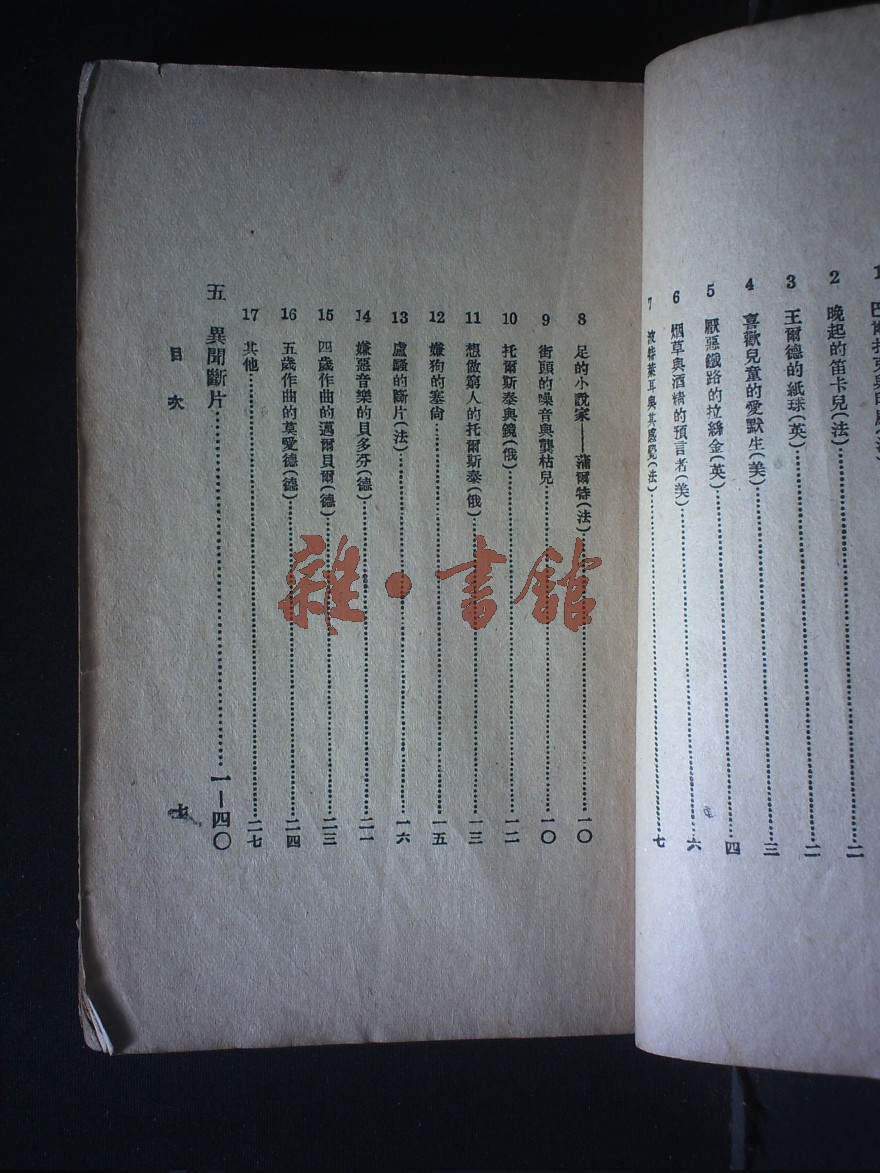 2 晚起的笛卡兒(法)……二
3 王爾德的紙球(英)……二
4 喜歡兒童的愛默生(美)……三
5 厭惡鐵路的拉絲金(英)……四
6 烟草與酒精的預言者(美)……六
7 波特萊耳與其感覺(法)……七
8 足的小說家——蒲爾特(法)……一〇
9 街頭的噪音與龔枯兒……一〇
10 托爾斯泰與鏡(俄)……一二
11 想做窮人的托爾斯泰(俄)……一三
12 嫌狗的塞尙……一五
13 盧騷的斷片(法)……一六
14 嫌惡音樂的貝多芬(德)……二一
15 四歲作曲的邁爾貝爾(德)……二三
16 五歲作曲的莫愛德(德)……二四
17 其他……二七
五 異聞斷片……一—四〇
目次
七
雜·書館